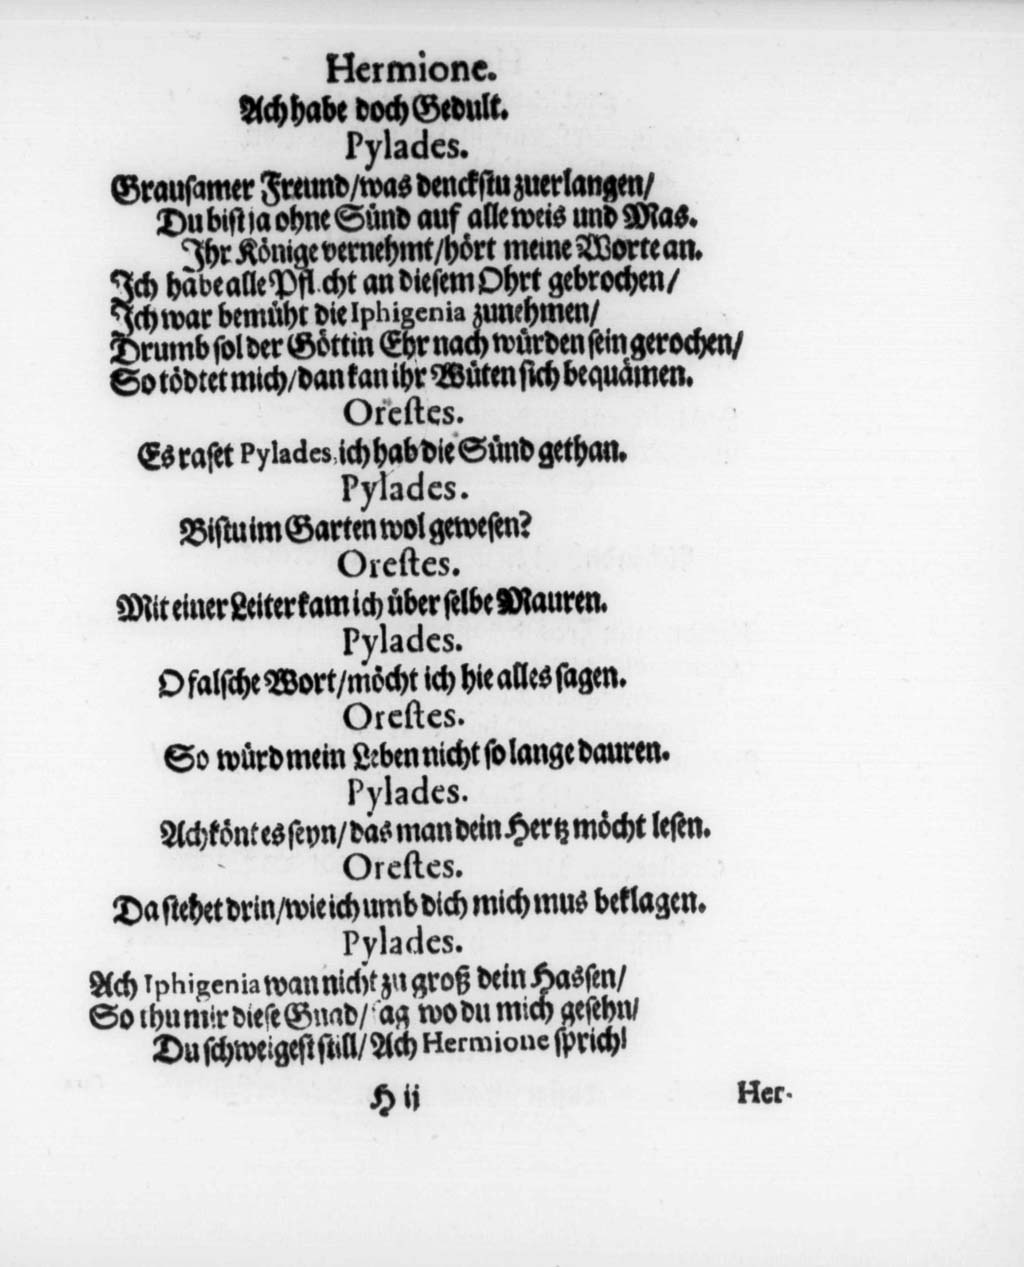 Hermione.
Ach habe doch Gedult.
Pylades.
Grausamer Freund/was denckstu zuerlangen/
Du bist ja ohne Sünd auf alle weis und Mas.
Ihr Könige vernehmt/hört meine Worte an.
Ich habe alle Pfl.cht an diesem Ohrt gebrochen/
Ich war bemüht die Iphigenia zunehmen/
Drumb sol der Göttin Ehr nach würden sein gerochen/
So tödtet mich/dan kan ihr Wüten sich bequämen.
Orestes.
Es raset Pylades, ich hab die Sünd gethan.
Pylades.
Bistu im Garten wol gewesen?
Orestes.
Mit einer Leiter kam ich über selbe Mauren.
Pylades.
O falsche Wort/möcht ich hie alles sagen.
Orestes.
So würd mein Leben nicht so lange dauren.
Pylades.
Ach könt es seyn/das man dein Hertz möcht lesen.
Orestes.
Da stehet drin/wie ich umb dich mich mus beklagen.
Pylades.
Ach Iphigenia wan nicht zu groß dein Hassen/
So thu mir diese Gnad/ sag wo du mich gesehn/
Du schweigest still/ Ach Hermione sprich!
H ij
Her-